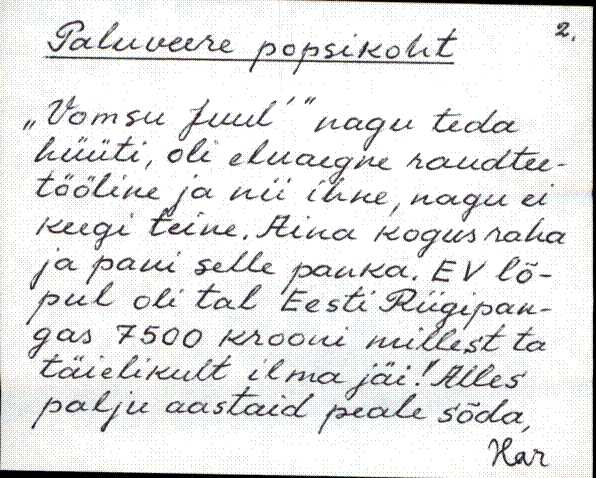 2.
Paluveere popsikoht
„Vomsu Juul'" nagu teda
hüüti, oli eluaegne raudtee-
tööline ja nii ihne, nagu ei
keegi teine. Aina kogus raha
ja pani selle panka. EV lõ-
pul oli tal Eesti Riigipan-
gas 7500 krooni millest ta
täielikult ilma jäi! Alles
palju aastaid peale sõda,
Har